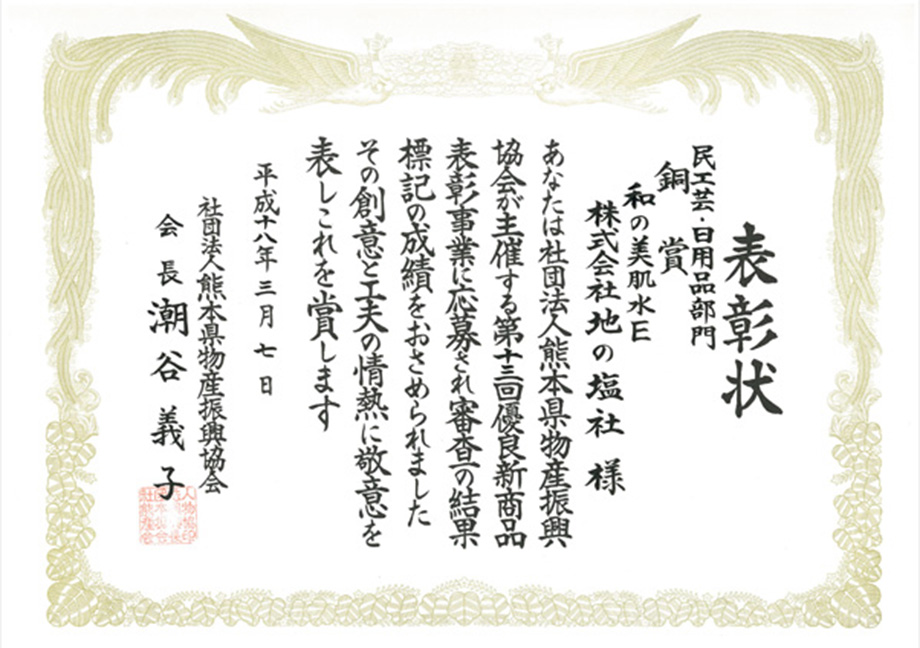 表彰状
民工芸・日用品部門
銅賞
和の美肌水E
株式会社地の塩社 様
あなたは社団法人熊本県物産振興
協会が主催する第十三回優良新商品
表彰事業に応募され審査の結果
標記の成績をおさめられました
その創意と工夫の情熱に敬意を
表しこれを賞します
平成十八年三月七日
社団法人熊本県物産振興協会
会長 潮谷義子